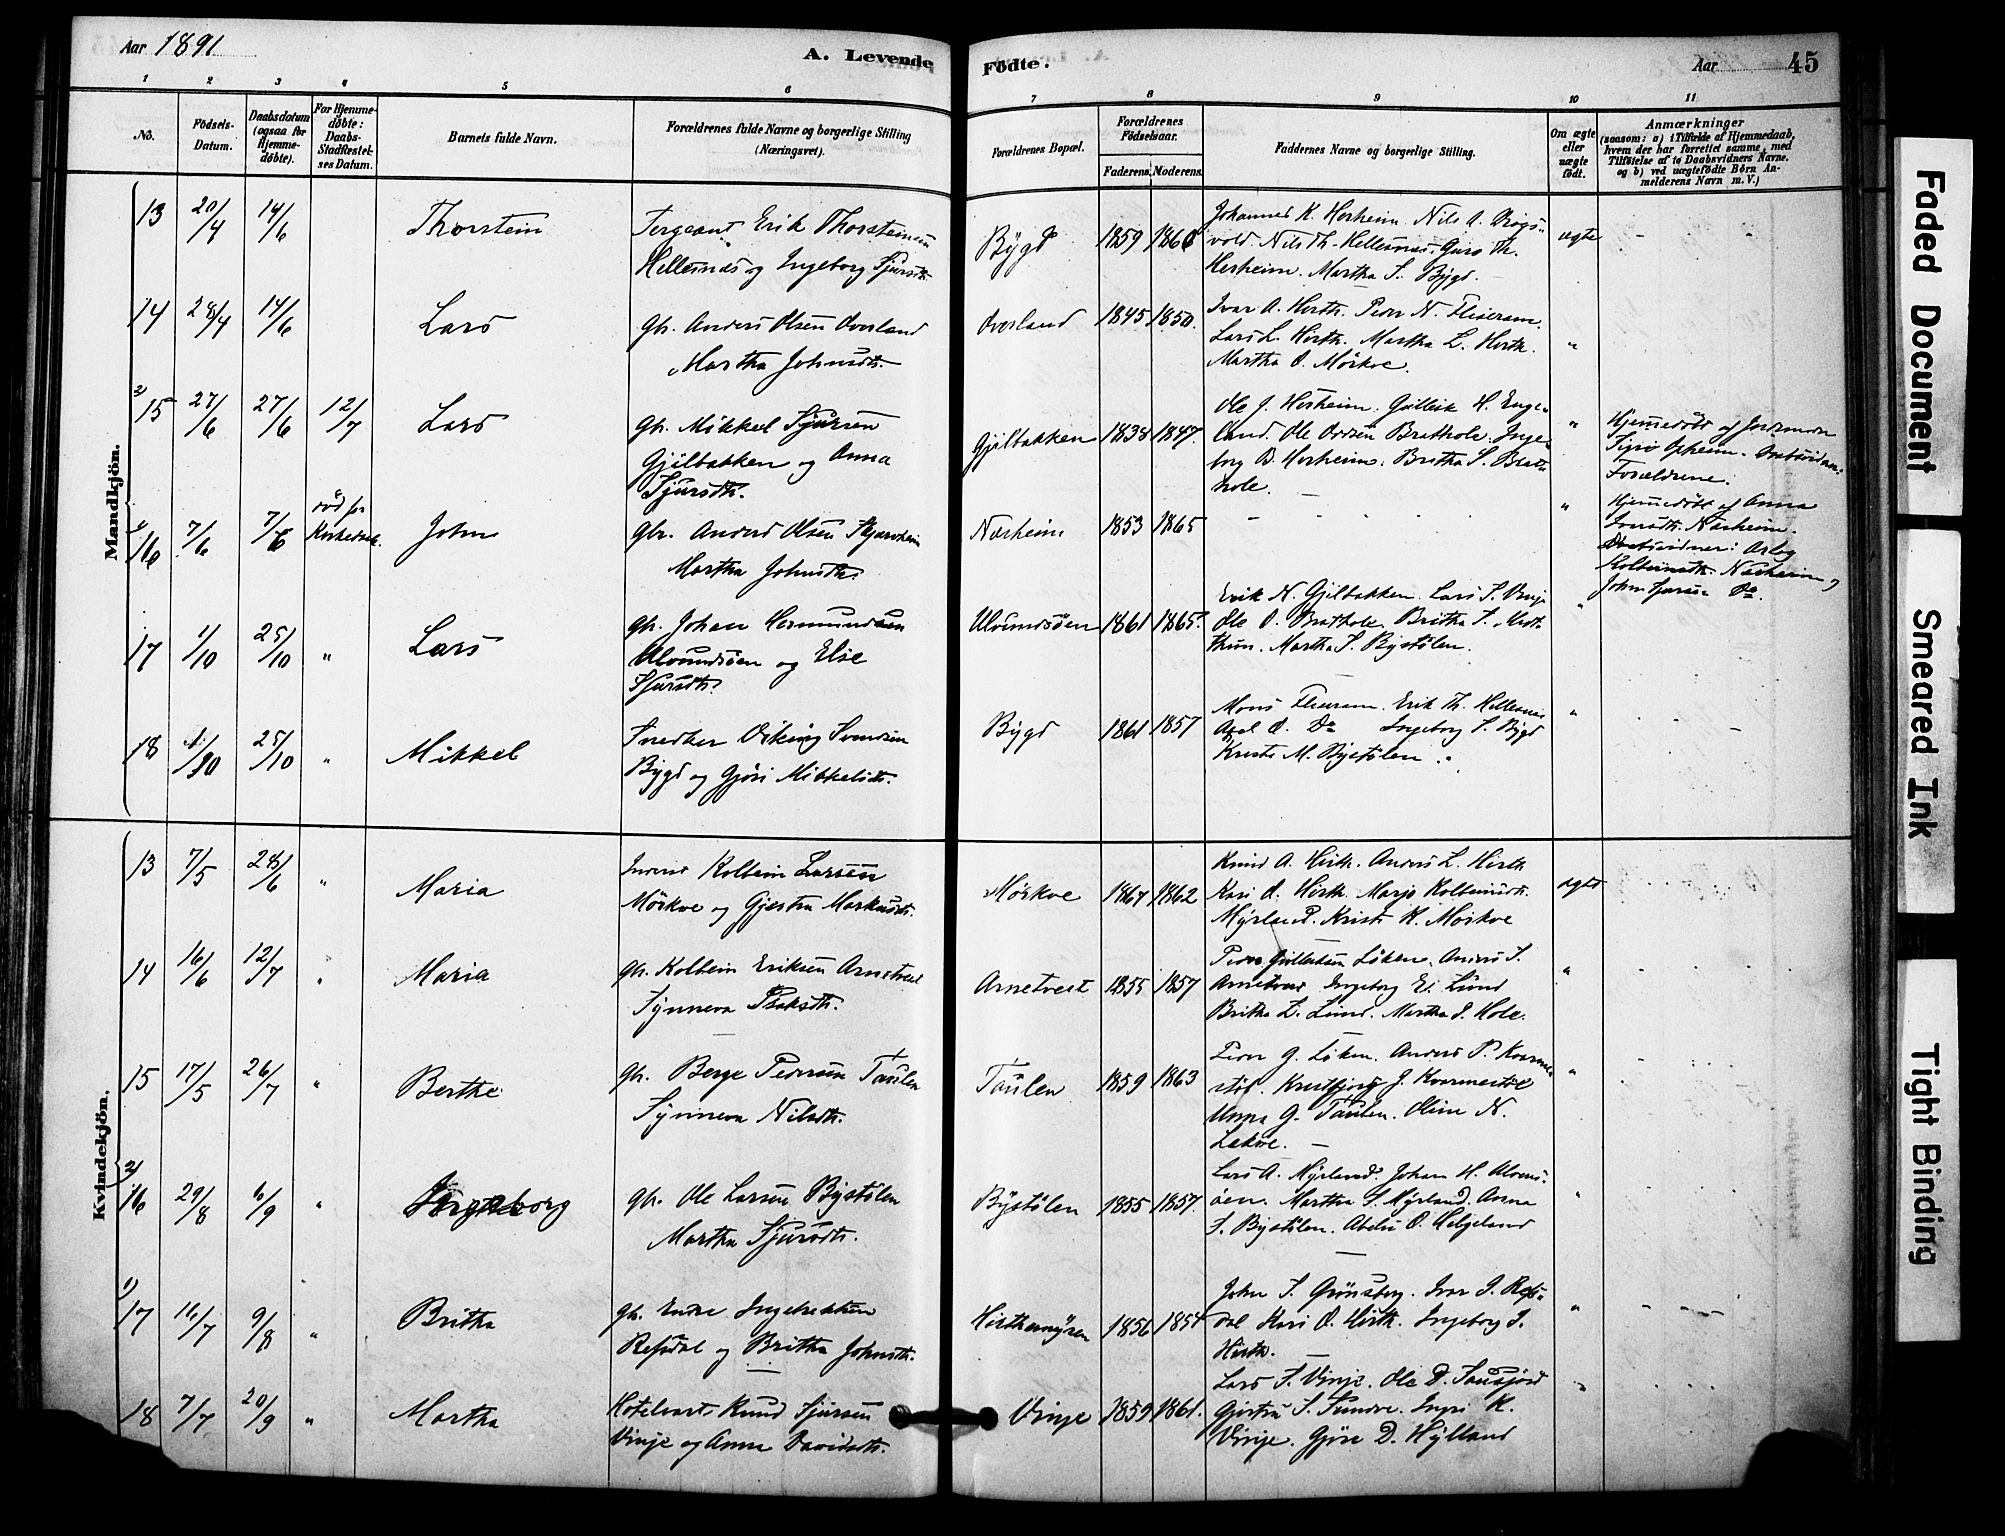 Aar 1891
A. Levende
Fødte.
Aar
45
1 2 3 4 5 6 7 8 9 10 11
No.
Fødsels-Datum.
Daabsdatum (ogsaa for Hjemme-døbte).
For Hjemme-døbte: Daabs-Stadfæstel-ses Datum.
Barnets fulde Navn.
Forældrenes fulde Navne og borgerlige Stilling (Næringsvei).
Forældrenes Bopæl.
Forældrenes Fødselsaar.
Faderens. Moderens.
Faddernes Navne og borgerlige Stilling.
Om ægte eller uægte født.
Anmærkninger
(saasom: a) i Tilfælde af Hjemmedaab,
hvem der har forrettet samme, med
Tilføielse af to Daabsvidners Navne.
og b) ved uægtefødte Børn An-
melderens Navn m. V.)
Mandkjøn.
13 20/4 14/6 Thorstein
Sergeant Erik Thorsteinsen
Hellesnæs og Ingeborg Sjursdtr.
Bygd 1859 1860
Johannes K. Herheim. Nils A.
vold. Nils Th. Hellesnæs. Guro Th.
Herheim. Martha S. Bygd.
ægte
14 28/4 14/6 Lars
gb. Anders Olsen Overland
Martha Johnsdtr.
Overland 1845 1850.
Ivar A. Hirth. Peder N.
Lars L. Hirth. Martha L. Hirth.
Martha O. Mørkve.
"
2) 15 27/6 27/6 12/7 Lars
gb. Mikkel Sjursen
Gjilbakken og Anna
Sjursdtr.
Gjilbakken 1838 1847.
Ole J. Herheim. Gulleik H. Enge-
land. Ole Oddsen Brathole. Inge-
borg B. Herheim. Britha S. Brat-
hole.
"
Hjemmedøbt af Jordmoder
Sigrid Opheim.
Forældrene.
1) 16 7/6 7/6
død før
John
gbr. Anders Olsen
Martha Johnsdtr.
Nærheim 1853 1865
"
Hjemmedøbt af Anna
Nærheim.
Daabsvidner:
Kolbeinsdtr. Nærheim og
John Sjursen Do.
17 1/10 25/10 " Lars
gb. Johan Hermundsen
Ulvundsøen og Else
Sjursdtr.
Ulvundsøen 1861 1865.
Erik N. Gjilbakken. Lars S. Vinje
Ole O. Brathole. Britha S. Midt-
thun. Martha S. Bystølen.
"
18 25/10 " Mikkel
Snedker Viking Svendsen
Bygd og Gjøri Mikkelsdtr.
Bygd 1861 1857
Mons Erik Th. Hellesnæs
Do Ingeborg S. Bygd
M. Bystølen.
"
Kvindekjøn.
13 7/5 28/6 " Maria
Kolbein Larsen
Mørkve og Gjertru Markusdtr.
Mørkve 1864 1862
Knud A. Hirth. Anders L. Hirth
Kari A. Hirth. Marjo Kolbeinsdtr.
Myrland. K. Mørkve
ægte
14 16/6 12/7 " Maria
gb. Kolbein Eriksen Arnetveit
Synneva Isaksdtr.
Arnetveit 1855 1857
Peder Løken. Anders S.
Arnetveit Ingeborg E. Lund
Britha L. Lund. Martha I. Hole.
"
15 17/5 26/7 " Berthe
gb. Berge Pedersen Taulen
Synneva Nilsdtr.
Taulen 1859 1863
Peder G. Løken. Anders P. Kvarme-
støl. J. Kvarmestøl
Unna G. Taulen. Oline N.
"
2) 16 29/8 6/9 " Ingeborg
gb. Ole Larsen Bystølen
Martha Sjursdtr.
Bystølen 1855 1857.
Lars A. Myrland. Johan H. Ulvunds-
øen. Martha S. Myrland. Anna
S. Bystølen. O. Helgeland
"
1) 17 16/7 9/8 " Britha
gb. Endre Ingebrektsen
Refsdal og Britha Johnsdtr.
Hirthemyren 1856 1854
John S. Grønsberg. Ivar I. Refs-
dal Kari O. Hirth. Ingeborg I.
Hirth.
"
18 7/7 20/9 " Martha
Hotelvært Knud Sjursen
Vinje og Anna Davidsdtr.
Vinje 1859 1861.
Lars S. Vinje. Ole D.
Gjertru S. Ingri K.
Vinje. Gjøri D. Hylland
"
Faded Document
Smeared Ink
Tight Binding